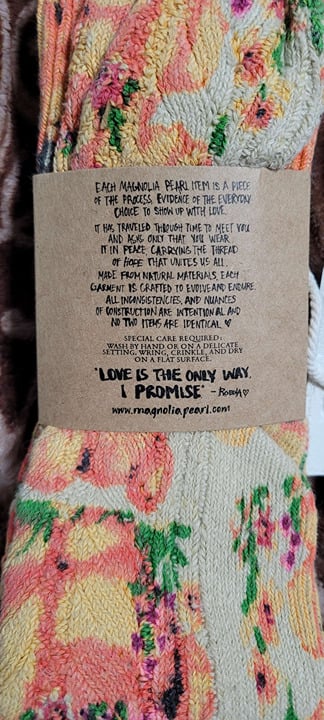 EACH MAGNOLIA PEARL ITEM IS A PIECE
OF THE PROCESS, EVIDENCE OF THE EVERYDAY
CHOICE TO SHOW UP WITH LOVE.
IT HAS TRAVELED THROUGH TIME TO MEET YOU
AND ASKS ONLY THAT YOU WEAR
IT IN PEACE, CARRYING THE THREAD
OF HOPE THAT UNITES US ALL.
MADE FROM NATURAL MATERIALS, EACH
GARMENT IS CRAFTED TO EVOLVE AND ENDURE.
ALL INCONSISTENCIES, AND NUANCES
OF CONSTRUCTION ARE INTENTIONAL AND
NO TWO ITEMS ARE IDENTICAL. ♥
SPECIAL CARE REQUIRED:
WASH BY HAND OR ON A DELICATE
SETTING, WRING, CRINKLE, AND DRY
ON A FLAT SURFACE.
"LOVE IS THE ONLY WAY.
I PROMISE"
www.magnoliapearl.com